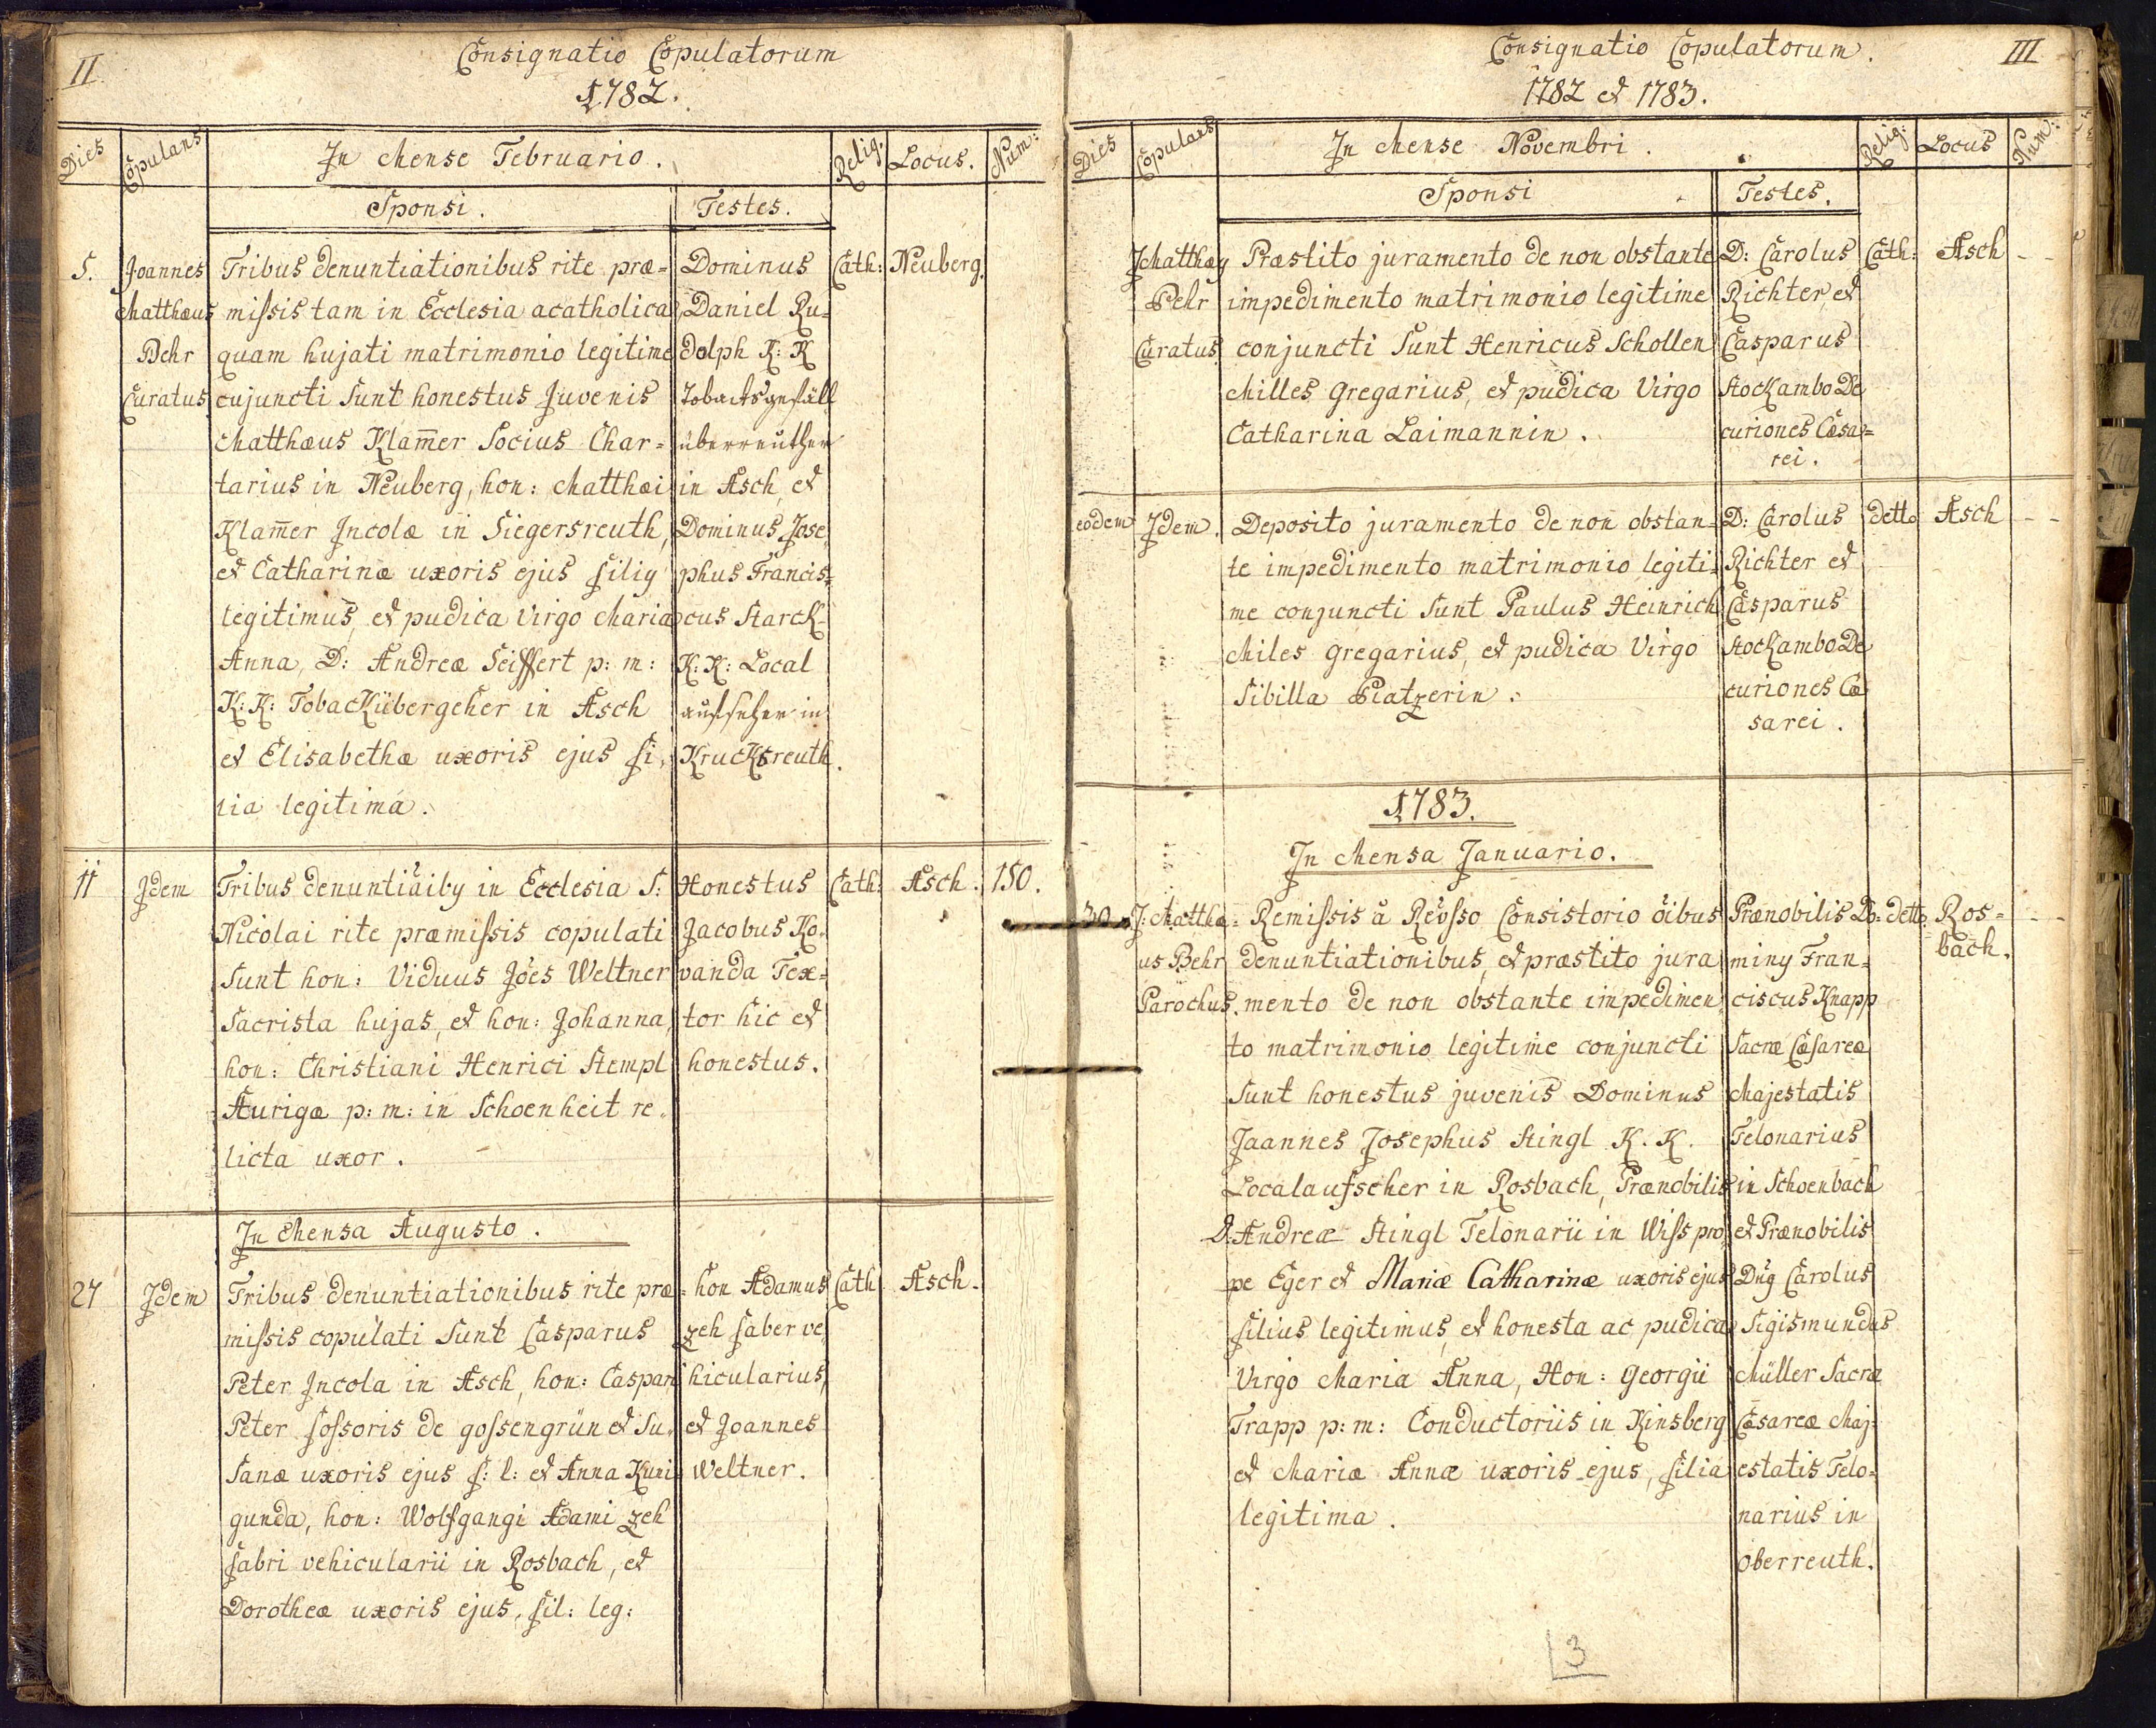 II
Consignatio Copulatorum
1782.
Dies
Copulans
In Mense Februario.
Relig.
Locus.
Num:
Sponsi.
Testes.
5.
Joannes
Matthæus
Behr
Curatus
Tribus denuntiationibus rite præ-
missis tam in Ecclesia acatholica
quam hujati matrimonio legitime
cujuncti sunt honestus Juvenis
Matthæus Klam̄er Socius Char-
tarius in Neuberg, hon: Matthæi
Klam̄er Incolæ in Siegersreuth,
et Catharinæ uxoris ejus filiꝰ
legitimus, et pudica Virgo Maria
Anna, D: Andreæ Seiffert p: m:
K: K: Tobackübergeher in Asch
et Elisabethæ uxoris ejus fi-
lia legitima.
Dominus
Daniel Ru-
dolph K: K
Tobacksgefäll
überreuther
in Asch, et
Dominus Jose-
phus Francis-
cus Starck
K: K: Local
aufseher in
Krucksreuth.
Cath:
Neuberg.
11
Idem
Tribus denuntiãibꝰ in Ecclesia S:
Nicolai rite præmissis copulati
sunt hon: Viduus Jões Weltner
Sacrista hujas, et hon: Johanna,
hon: Christiani Henrici Stempl
Aurigæ p: m: in Schoenheit re-
licta uxor.
Honestus
Jacobus Ko-
vanda Tex-
tor hic et
honestus.
Cath:
Asch.
150.
In Mensa Augusto.
27
Idem
Tribus denuntiationibus rite præ-
missis copulati sunt Casparus
Peter Incola in Asch, hon: Caspari
Peter fossoris de gossengrün et Su-
sanæ uxoris ejus f: l: et Anna Kuni-
gunda, hon: Wolfgangi Adami Zeh
fabri vehicularii in Rosbach, et
Dorotheæ uxoris ejus, fil: leg:
hon Adamus
Zeh faber ve-
hicularius,
et Joannes
Weltner.
Cath
Asch.
Consignatio Copulatorum.
III
1782 et 1783.
Dies
Copulans
In Mense Novembri.
Relig:
Locus
Num:
Sponsi
Testes.
J Matthæꝰ
Behr
Curatus
Præstito juramento de non obstante
impedimento matrimonio legitime
conjuncti sunt Henricus Schollen
Milles Gregarius, et pudica Virgo
Catharina Laimannin.
D: Carolus
Richter, et
Casparus
Stockambo De
curiones Cæsa-
rei.
Cath:
Asch
eodem
Idem.
Deposito juramento de non obstan-
te impedimento matrimonio legiti-
me conjuncti sunt Paulus Heinrich
Miles gregarius, et pudica Virgo
Sibilla Platzerin.
D: Carolus
Richter et
Casparus
Stockambo De
curiones Cæ
sarei.
detto
Asch
1783.
In Mensa Januario.
30
J: Matthæ-
us Behr
Parochus.
Remissis â Rev̄sso Consistorio õibus
denuntiationibus, et præstito jura
mento de non obstante impedimen
to matrimonio legitime conjuncti
sunt honestus juvenis Dominus
Jaannes Josephus Stingl K. K.
Localaufseher in Rosbach, Prænobilis
D: Andreæ Stingl Telonarii in Wiss pro-
pe Eger et Mariæ Catharinæ uxoris ejus
filius legitimus, et honesta ac pudica
Virgo Maria Anna, Hon: Georgii
Trapp p: m: Conductoriis in Kinsberg
et Mariæ Annæ uxoris ejus, filia
legitima.
Prænobilis Do-
minꝰ Fran-
ciscus Knapp
Sacræ Cæsareæ
Majestatis
Telonarius
in Schoenbach
et Prænobilis
Dñꝰ Carolus
Sigismundus
Müller Sacræ
Cæsareæ Maj-
estatis Telo-
narius in
Oberreuth.
detto
Ros-
bach.
3